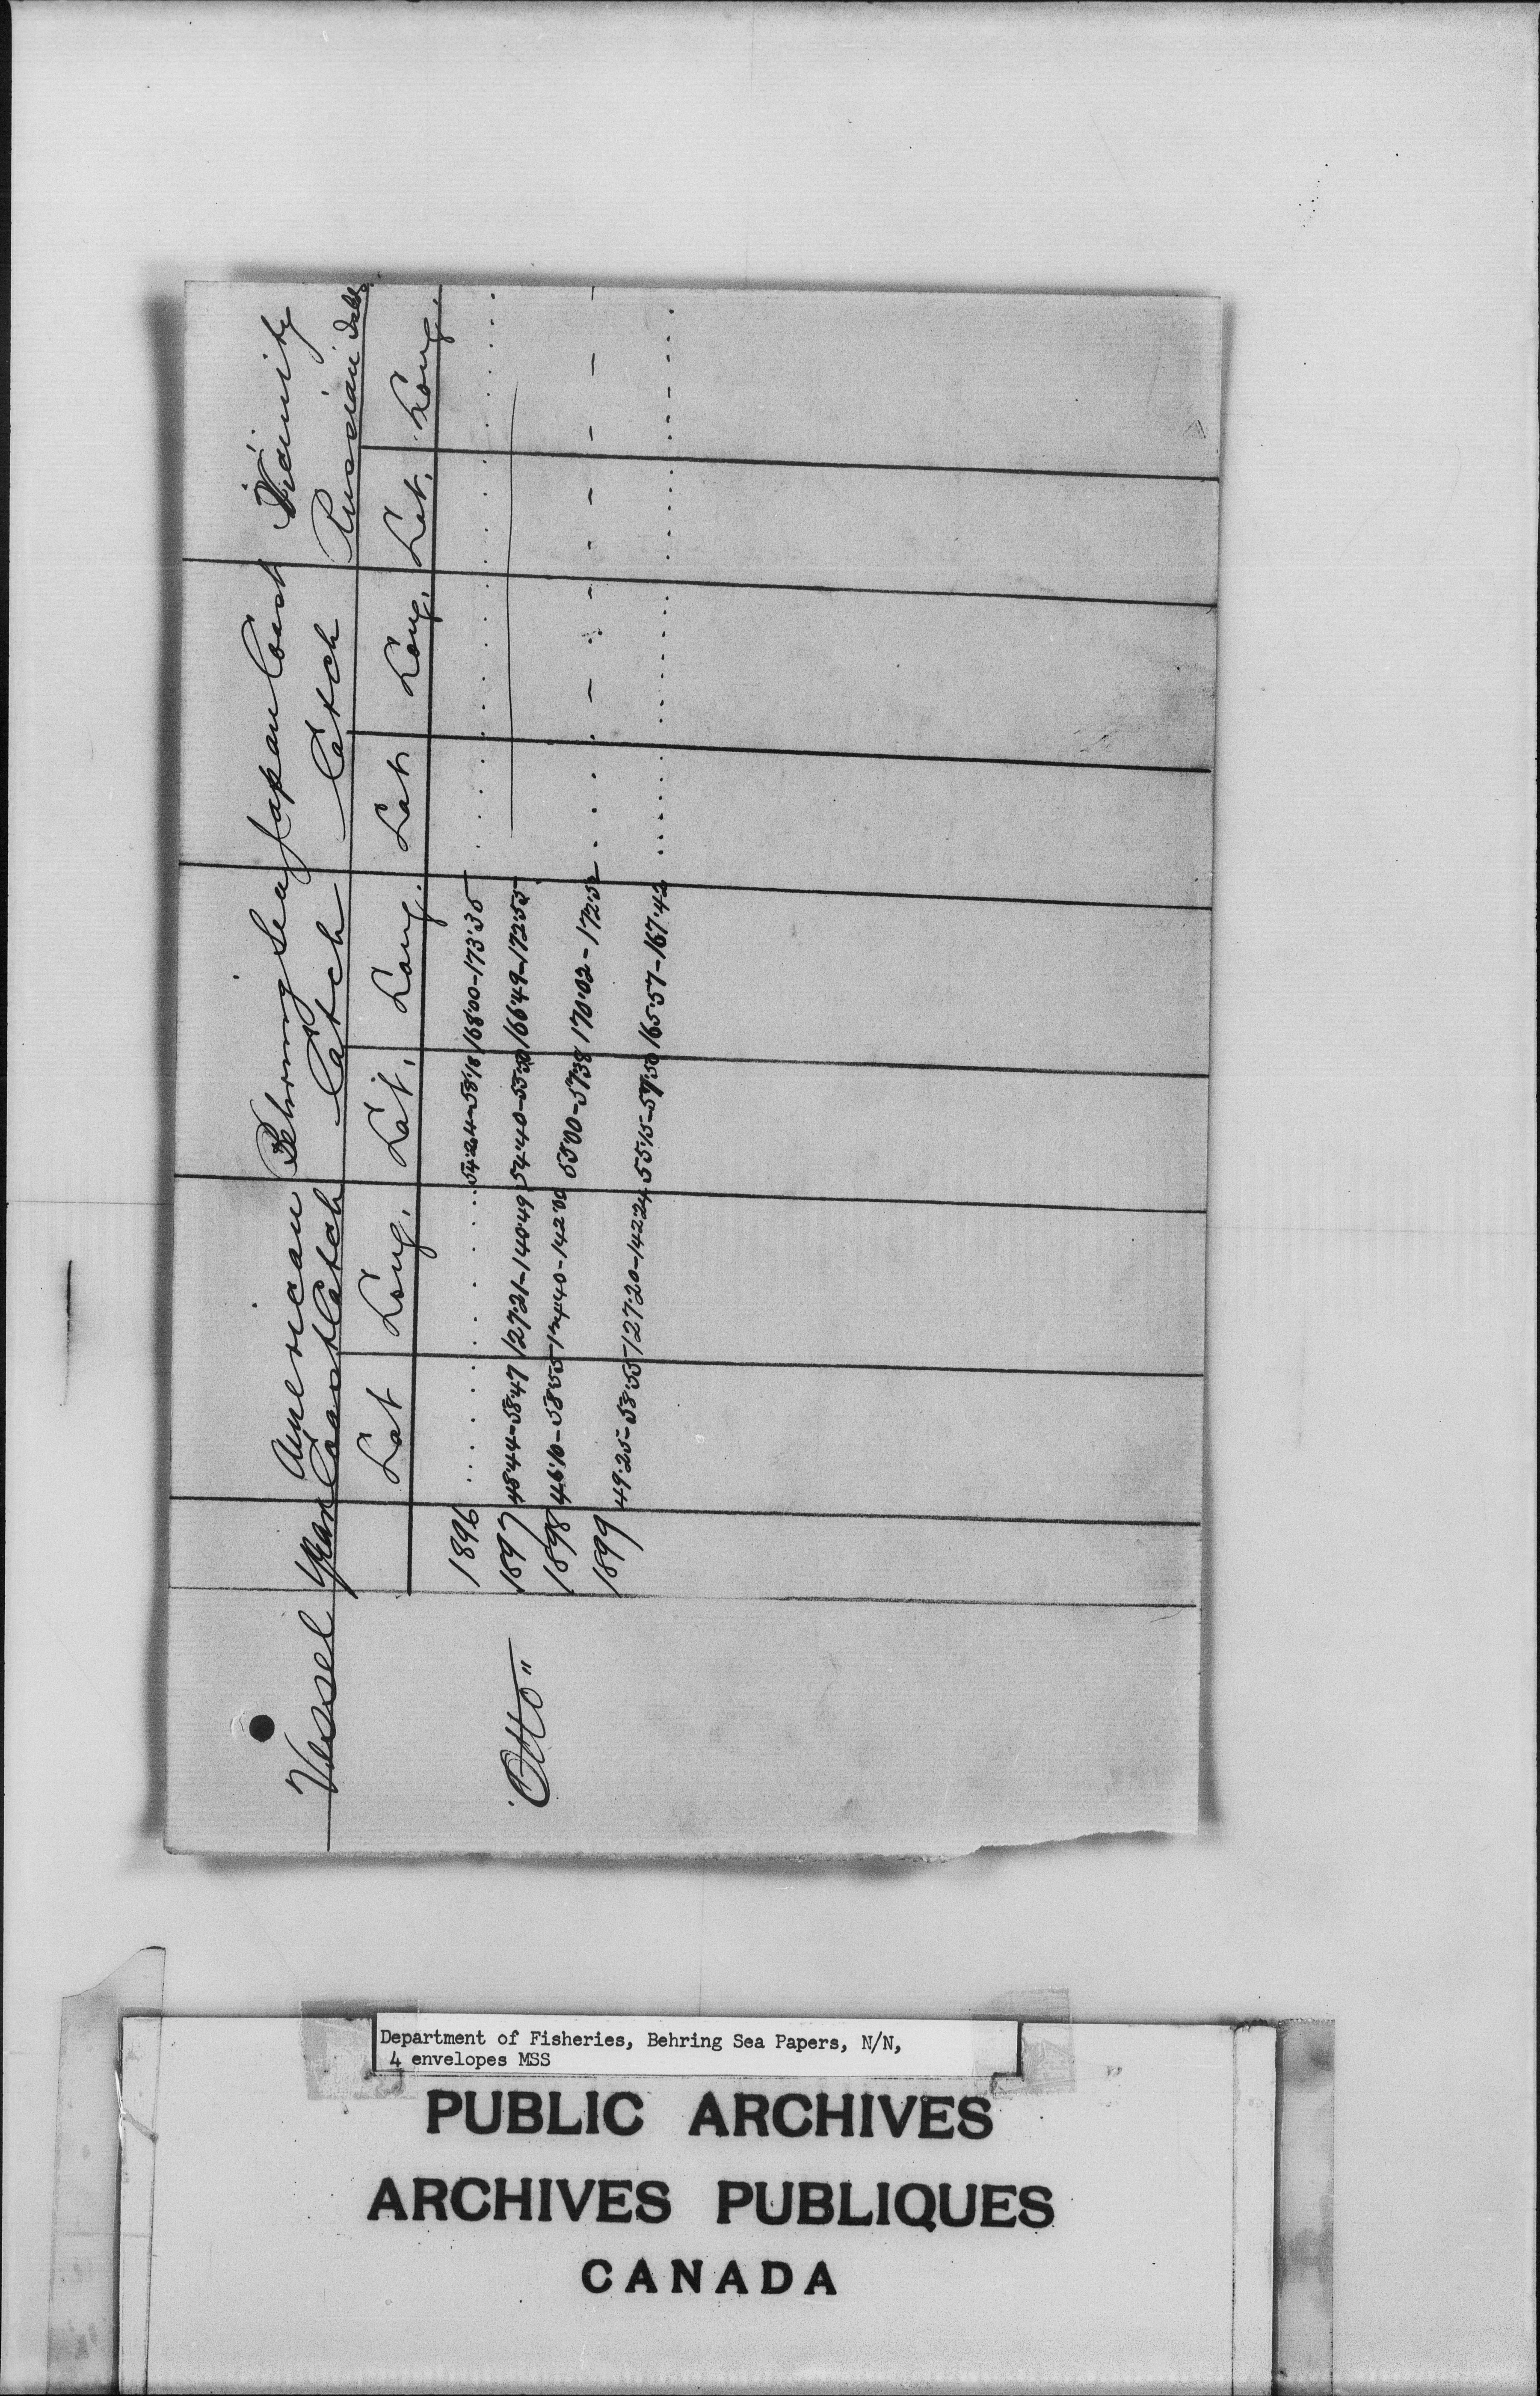 Vessel Year American Coast Catch Behring Sea Catch Japan Coast Catch Vicinity Russian Islds
Lat Long. Lat. Long. Lat Long. Lat. Long.
"Otto"
1896 . . . . . . . . . . 54.24-58.18 168.00-173.35 . . . . . . . . . . . . . . . .
1897 48.44-58.47 127.21-140.49 54.40-55.50 166.49-172.55
1898 46.10-58.55 124.40-142.00 55.00-57.38 170.02-172.52 . . . . - . - - - - - -
1899 49.25-58.55 127.20-142.24 55.15-57.50 165.57-167.42 . . . . . . . . . . . . . . . . . .
Department of Fisheries, Behring Sea Papers, N/N,
4 envelopes MSS
PUBLIC ARCHIVES
ARCHIVES PUBLIQUES
CANADA